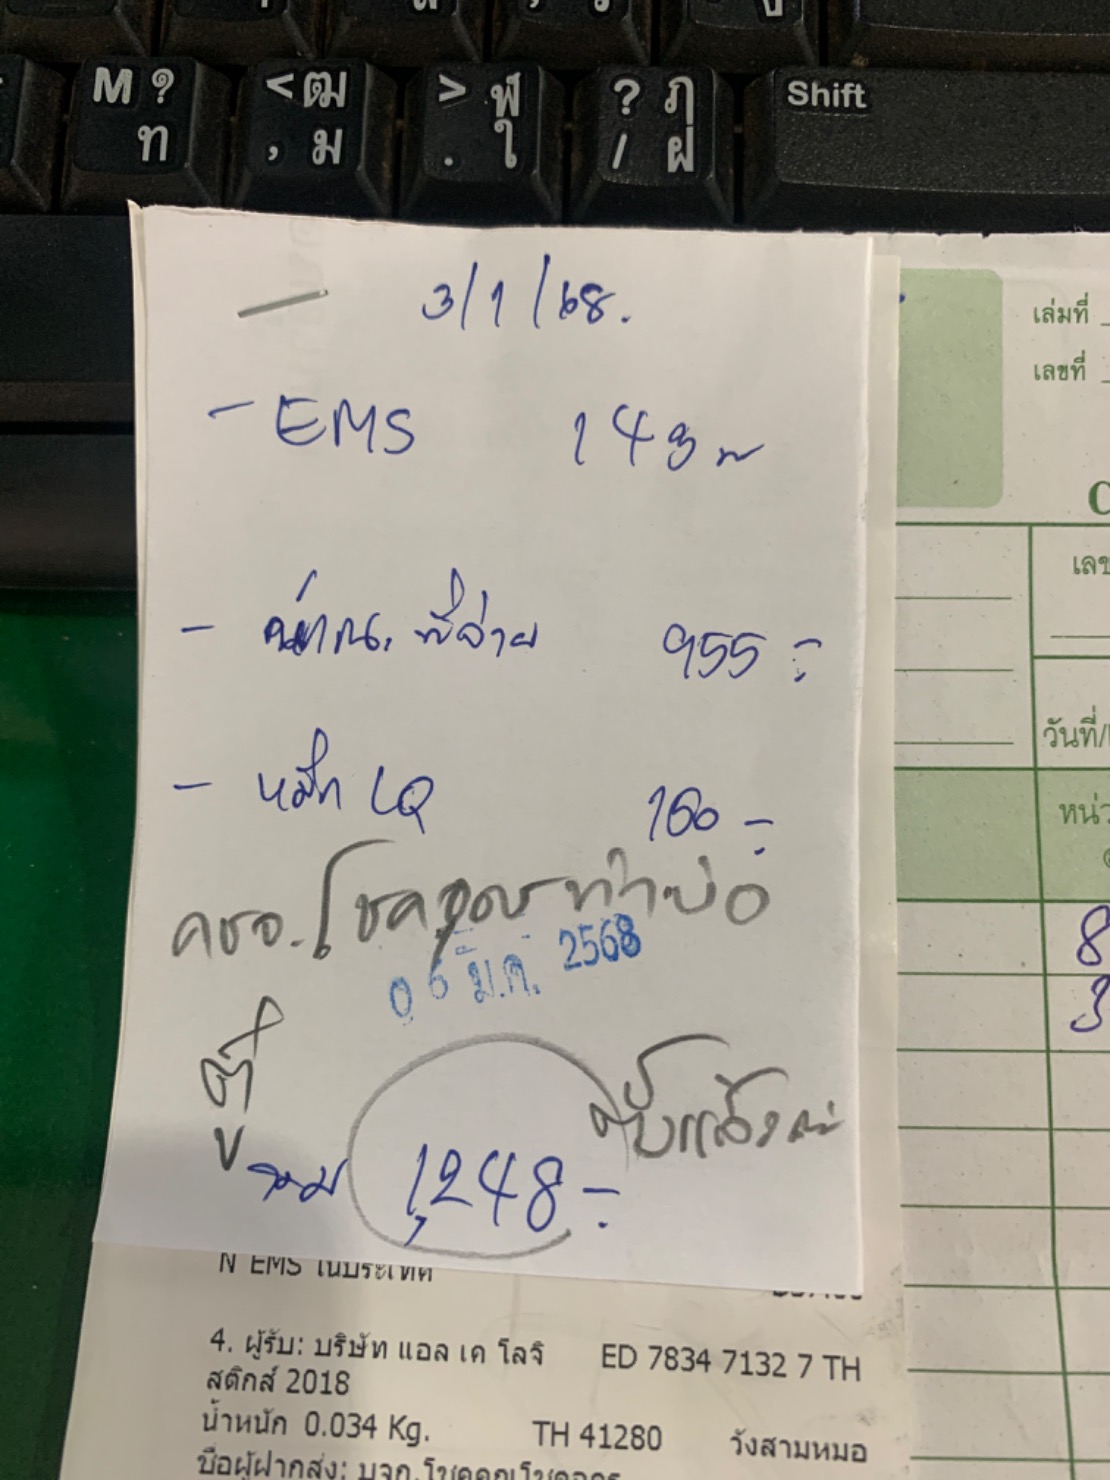 M ๑ ท
< ฒ , ม
> ฬ . ใ
? ฦ / ฝ
Shift
3/1/68.
เล่มที่
เลขที่
- EMS 143
- ที่จ่าย 955 -
เลข
วันที่/
- หมึก LQ 160 -
หน่ว
คชจ. โชค
06 มี.ค. 2568
8
3
ตู้
รวม 1,248 -
N EMS ในประเทศ
4. ผู้รับ: บริษัท แอล เค โลจิ ED 7834 7132 7 TH
สติกส์ 2018
น้ำหนัก 0.034 Kg. TH 41280 วังสามหมอ
ชื่อผู้ฝากส่ง: